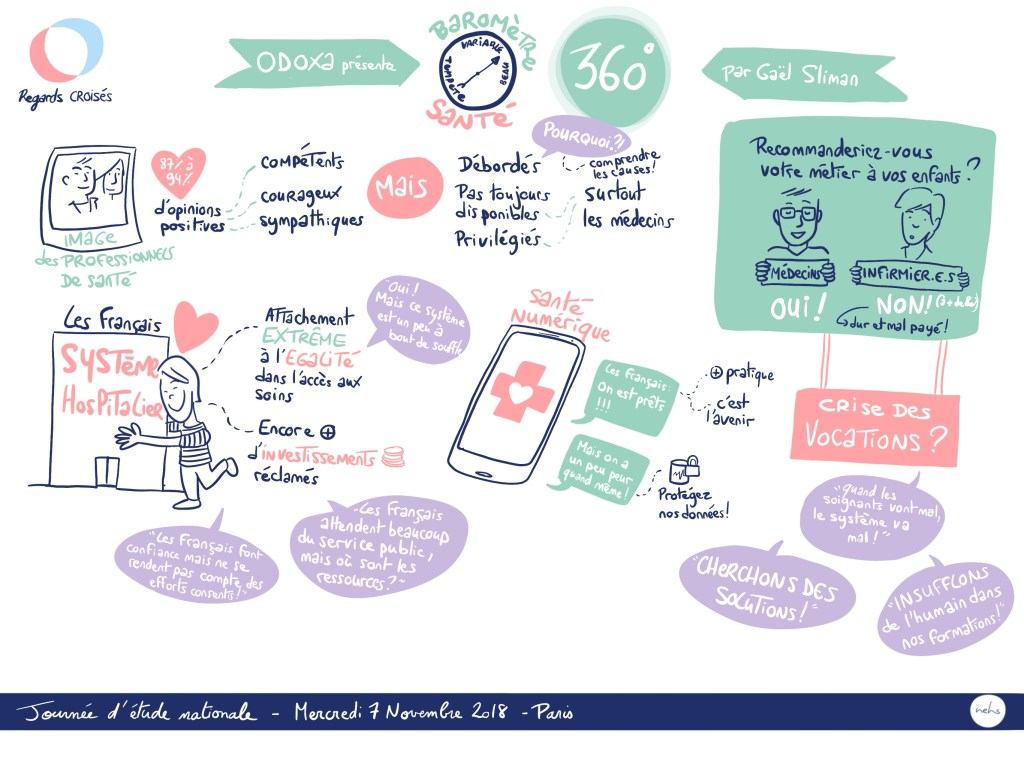 Regards CROISÉS
ODOXA présente
BAROMÈTRE
VARIABLE
TEMPÊTE
BEAU
SANTÉ
360°
Par Gaël Sliman
IMAGE
des PROFESSIONNELS
DE SANTÉ
87% à
94%
d'opinions
positives
COMPÉTENTS
COURAGEUX
SYMPATHIQUES
MAIS
POURQUOI?!
Débordés
comprendre
les causes!
Pas toujours
disponibles
Privilégiés
Surtout
les médecins
Recommanderiez-vous
votre métier à vos enfants?
Médecins
INFIRMIER.E.S
OUI!
NON!
dur et mal payé!
CRISE DES
VOCATIONS?
"quand les
soignants vont mal,
le système va
mal!"
"CHERCHONS DES
SOLUTIONS!"
"INSUFFLONS
de l'humain dans
nos formations!"
Les Français
SYSTÈME
HOSPITALIER
ATTachement
EXTRÊME
à l'EGALITÉ
dans l'accès aux
soins
"Oui!
Mais ce système
est un peu à
bout de souffle"
Encore +
d'investissements
réclamés
"Les Français font
confiance mais ne se
rendent pas compte des
efforts consentis!"
"Les Français
attendent beaucoup
du service public,
mais où sont les
ressources?"
SANTÉ
NUMÉRIQUE
Les Français:
On est prêts
!!!
+ pratique
c'est
l'avenir
Mais on a
un peu peur
quand même!
Protégez
nos données!
Journée d'étude nationale - Mercredi 7 Novembre 2018 - Paris
nehs